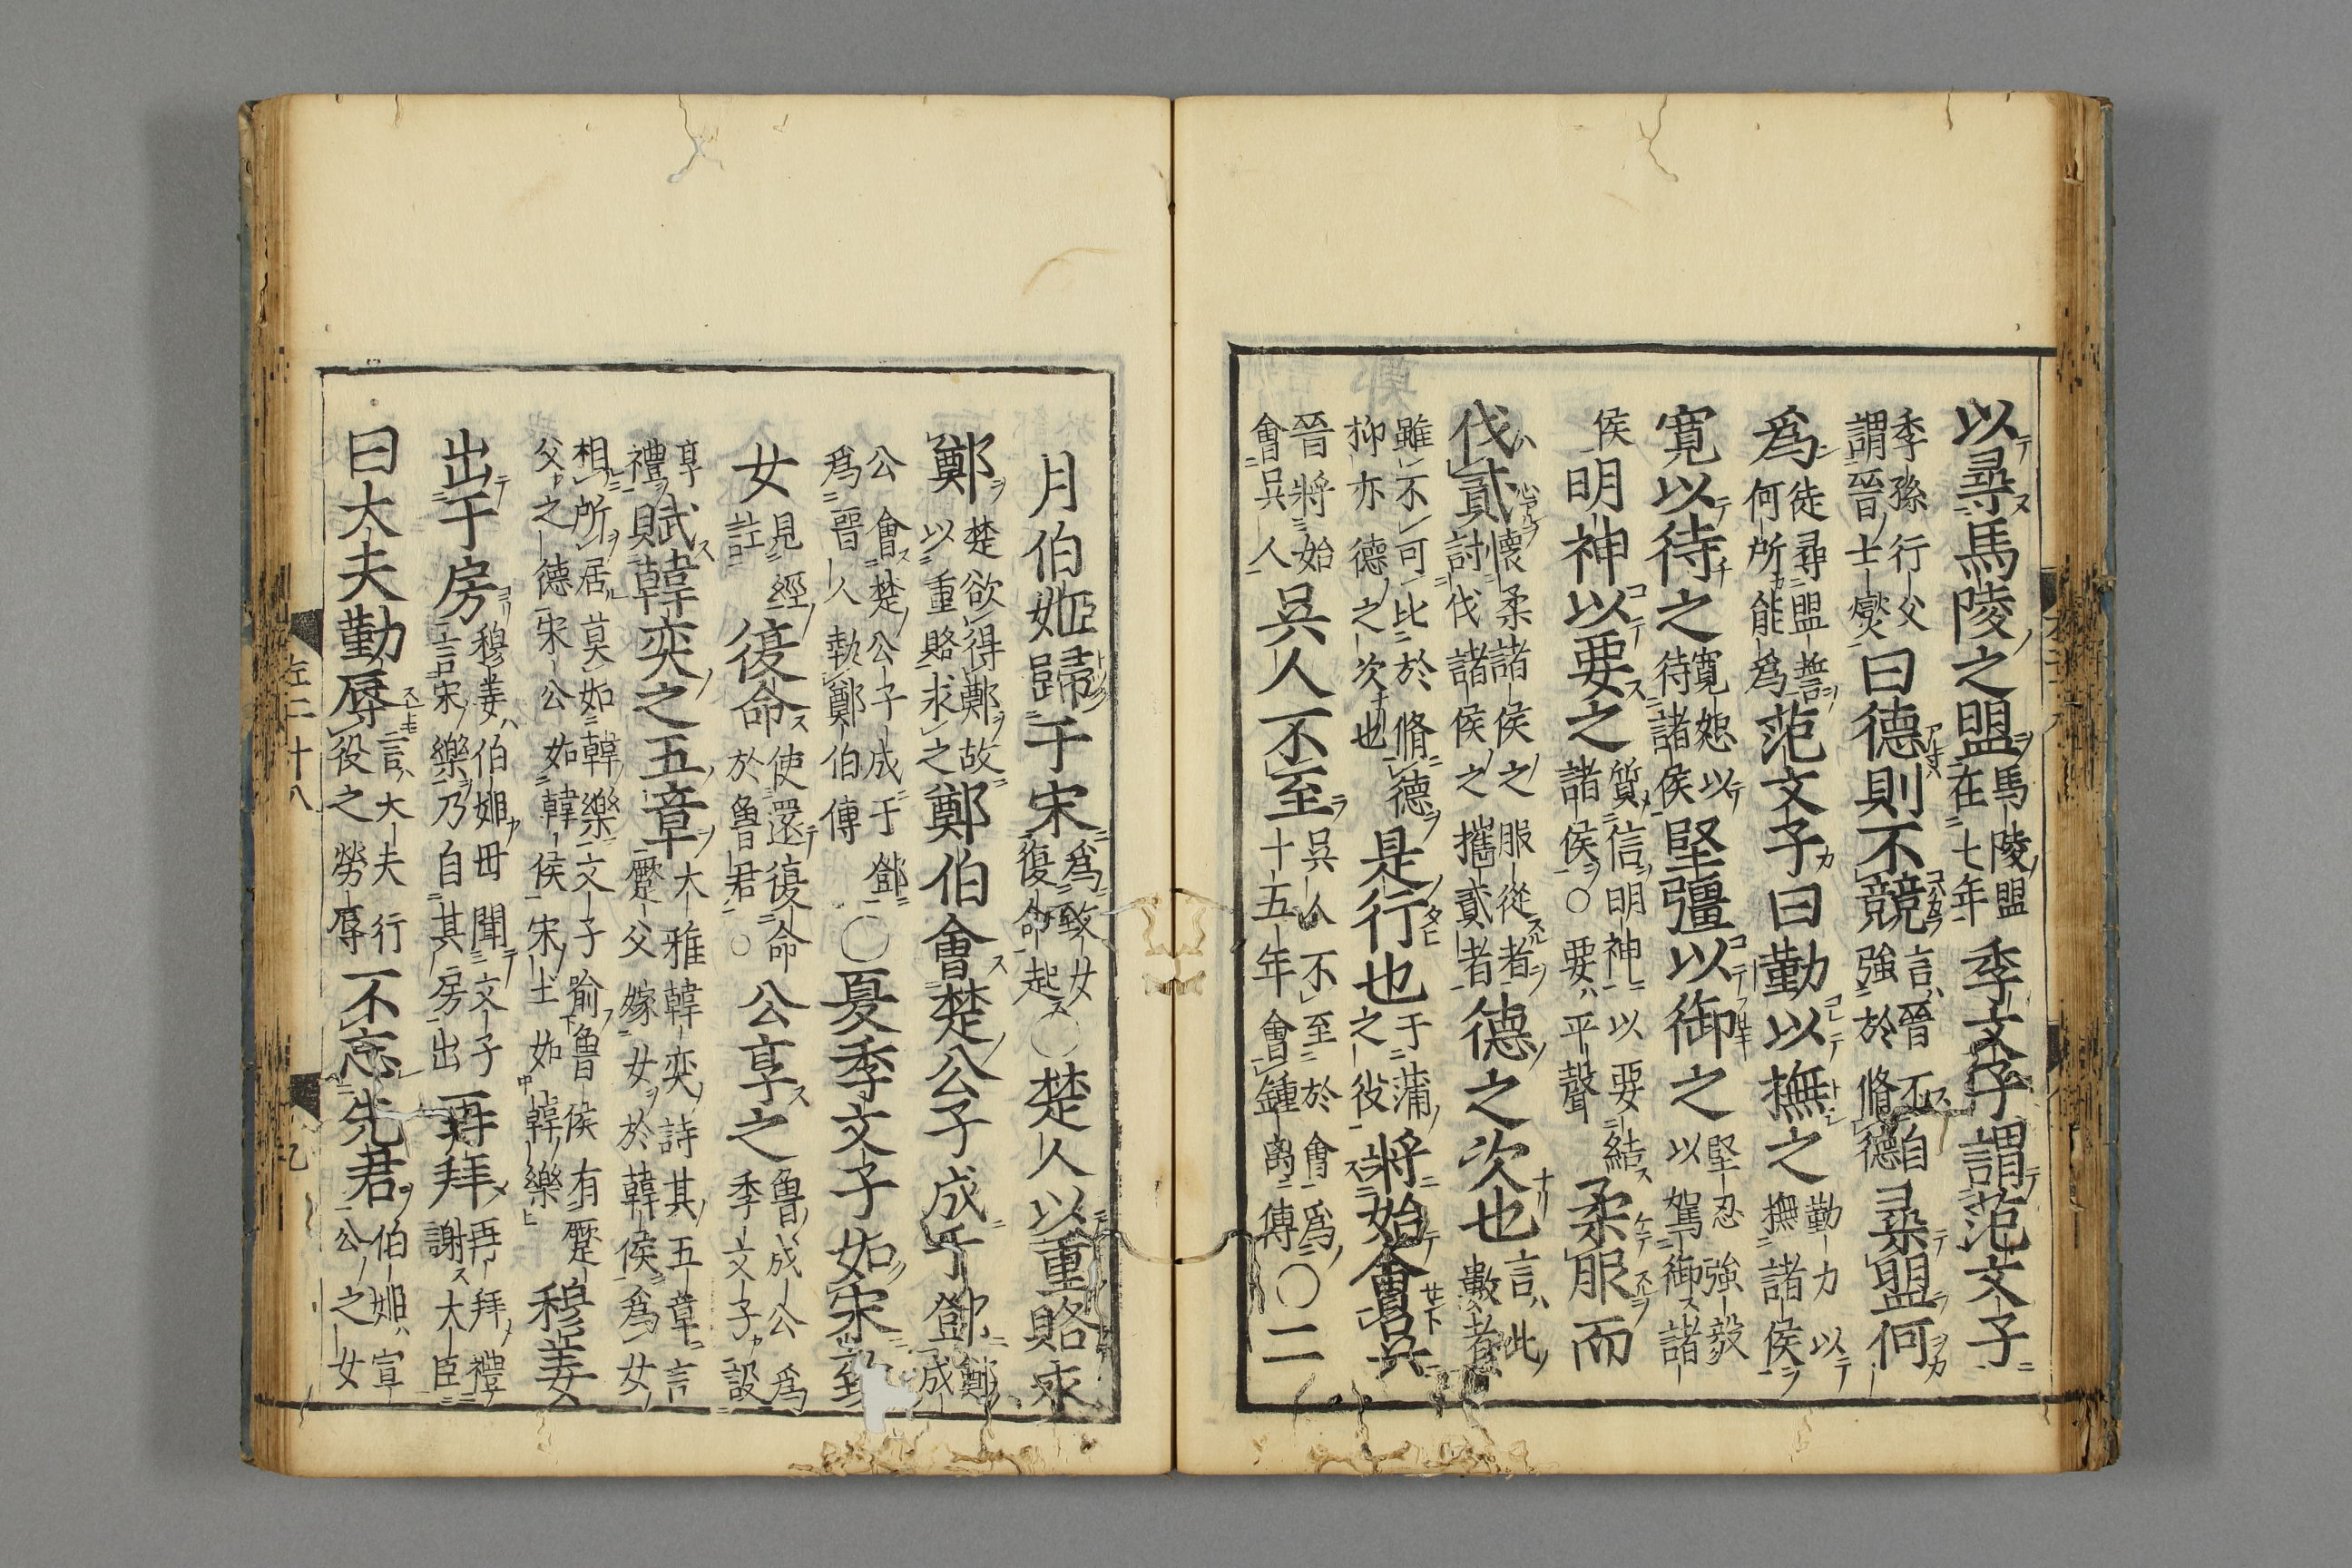 以尋馬陵之盟馬陵盟在七年季文子謂范文子
季孫行父謂晉士燮曰德則不競言晉不自強於脩德尋盟何
爲徒尋盟誓何所能爲范文子曰勤以撫之勤力以撫諸侯
寛以待之寛恕以待諸侯堅彊以御之堅忍強毅以駕御諸
侯明神以要之質信明神以要結諸侯○要平聲柔服而
伐貳懷柔諸侯之服從者討伐諸侯之攜貳者德之次也言此數者
雖不可比於脩德抑亦德之次也是行也于蒲之役將始會吳
晉將始會吳人吳人不至吳人不至於會爲十五年會鍾離傳○二
月伯姬歸于宋爲致女復命起○楚人以重賂求
鄭楚欲得鄭故以重賂求之鄭伯會楚公子成于鄧鄭成
公會楚公子成于鄧爲晉人執鄭伯傳○夏季文子如宋致
女見經註復命使還復命於魯君○公享之魯成公爲季文子設
享禮賦韓奕之五章大雅韓奕詩其五章言蹷父嫁女於韓侯爲女
相所居莫如韓樂文子喻魯侯有蹷父之德宋公如韓侯宋土如韓樂穆姜
出于房穆姜伯姬母聞文子言宋樂乃自其房出再拜再拜禮謝大臣
曰大夫勤辱言大夫行役之勞辱不忘先君伯姬宣公之女
左二十八